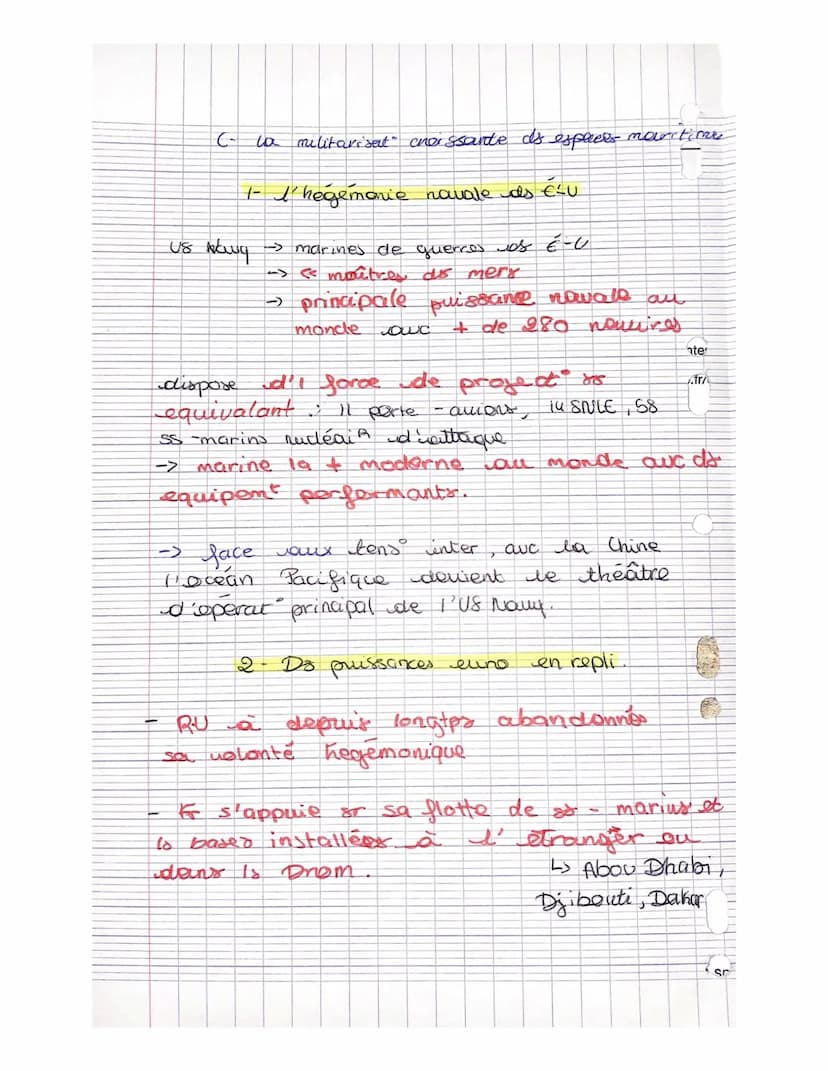 C- La militarisat° croissante ds espaces maritime
1- L'hégémonie navale des É-U
US Navy → marines de guerres des É-U
→ « maîtres ds mers
→ principale puissance navale au
monde avc + de 280 navires
nte
dispose d'1 force de project° ss
.fr/
equivalant : 11 porte-avions, 14 SNLE, 58
ss-marins nucléaiR d'attaque
→ marine la + moderne au monde avc ds
equipemt performants.
→ face aux tens° inter, avc la Chine
l'océan Pacifique devient le théâtre
d'opérat° principal de l'US Navy.
2- Ds puissances euro en repli.
- RU à depuis longtps abandonnés
sa volonté hegémonique
- Fr s'appuie sr sa flotte de ss-marins et
ls bases installées à l'étranger ou
dans ls Drom.
↳ Abou Dhabi,
Djibouti, Dakar
sr